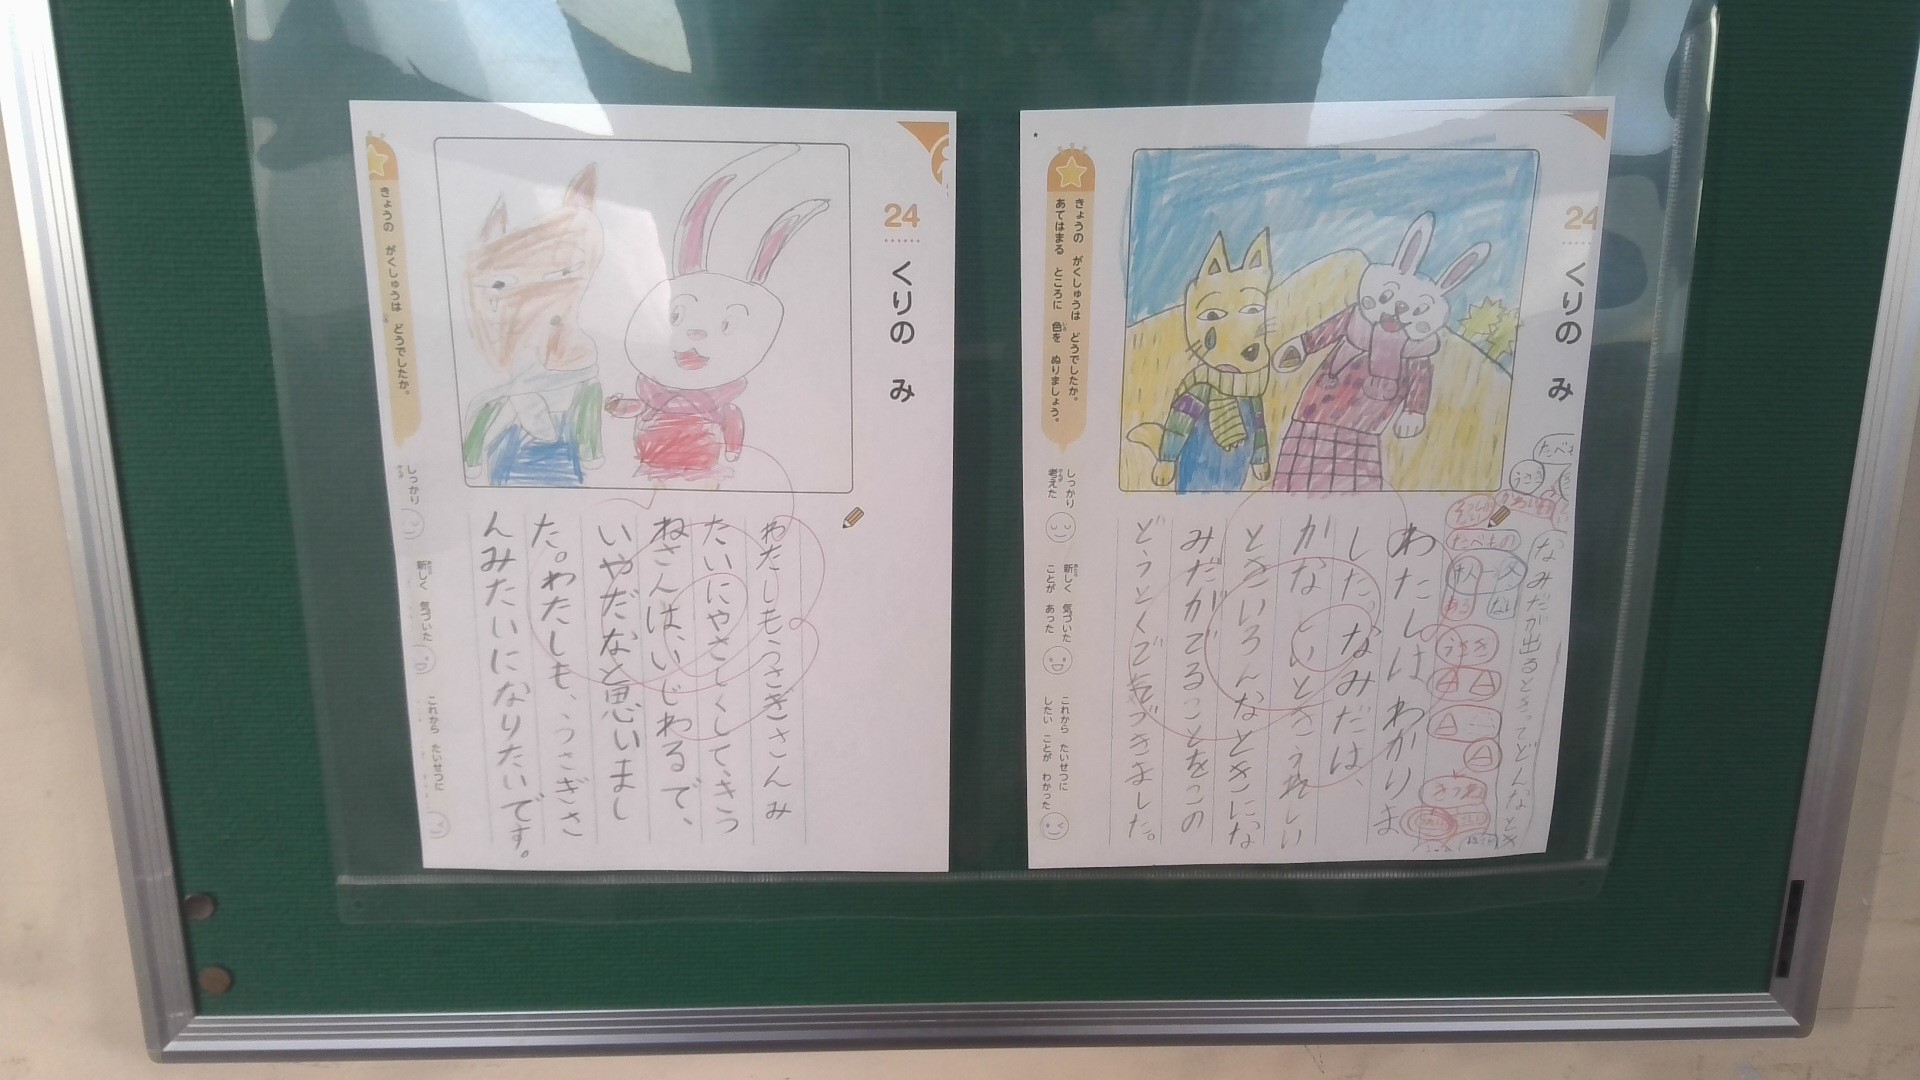 24
くりの み
わたしもうさぎさんみ
たいにやさしくして、きつ
ねさんは、いじわるで、
いやだなと思いまし
た。わたしも、うさぎさ
んみたいになりたいです。
きょうの がくしゅうは どうでしたか。
しっかり
新しく 気づいた
これから たいせつに
24
くりの み
なみだが出るときってどんなとき
たべもの
うさぎ
わたしは わかりま
した。なみだは、
かなしいときうれしい
ときいろんなときにな
みだがでることをこの
どうとくで気づきました。
きょうの がくしゅうは どうでしたか。
あてはまる ところに 色を ぬりましょう。
しっかり
考えた
新しく 気づいた
ことが あった
これから たいせつに
したい ことが わかった